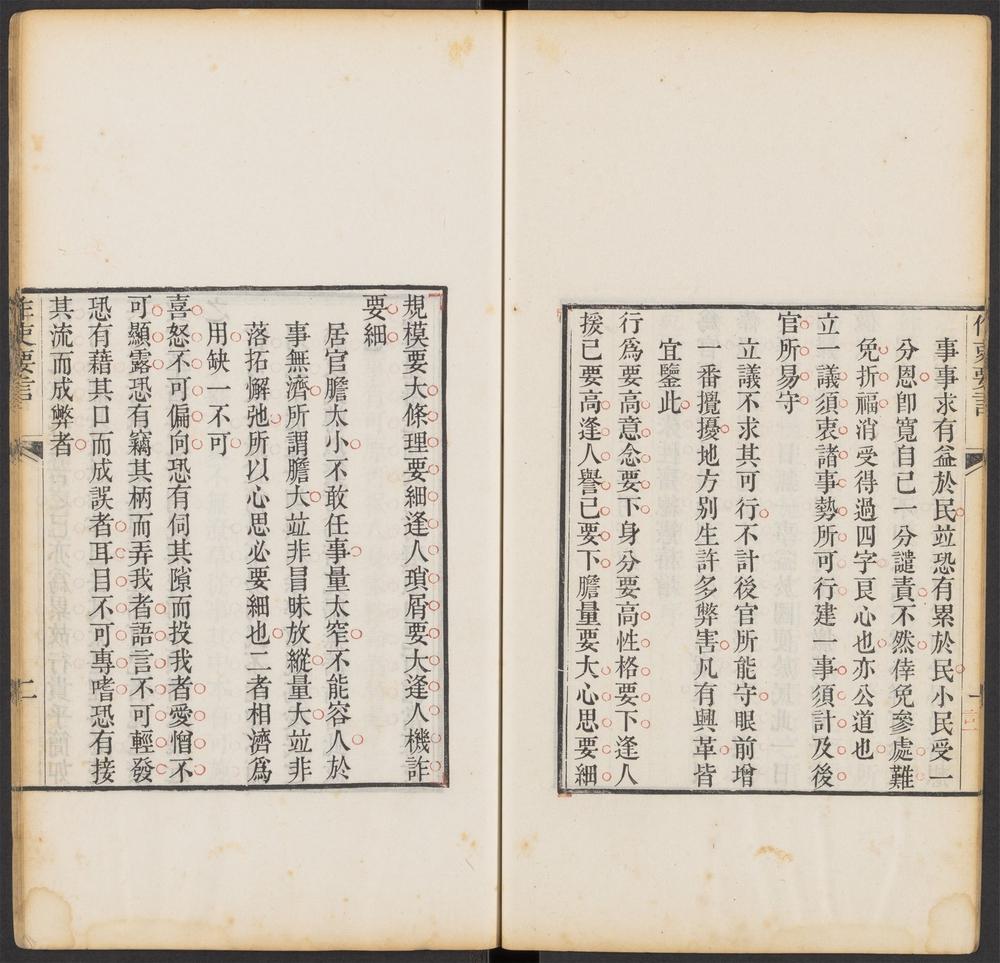 作吏要言
事事求有益於民並恐有累於民小民受一
分恩卽寬自己一分譴責不然倖免參處難
免折福消受得過四字良心也亦公道也
立一議須衷諸事勢所可行建一事須計及後
官所易守
立議不求其可行不計後官所能守眼前增
一番攪擾地方别生許多弊害凡有興革皆
宜鑒此
行爲要高意念要下身分要高性格要下逢人
援己要高逢人譽己要下膽量要大心思要細
規模要大條理要細逢人瑣屑要大逢人機詐
要細
居官膽太小不敢任事量太窄不能容人於
事無濟所謂膽大並非冒昧放縱量大並非
落拓懈弛所以心思必要細也二者相濟爲
用缺一不可
喜怒不可偏向恐有伺其隙而投我者愛憎不
可顯露恐有竊其柄而弄我者語言不可輕發
恐有藉其口而成誤者耳目不可專嗜恐有接
其流而成弊者
作吏要言
二